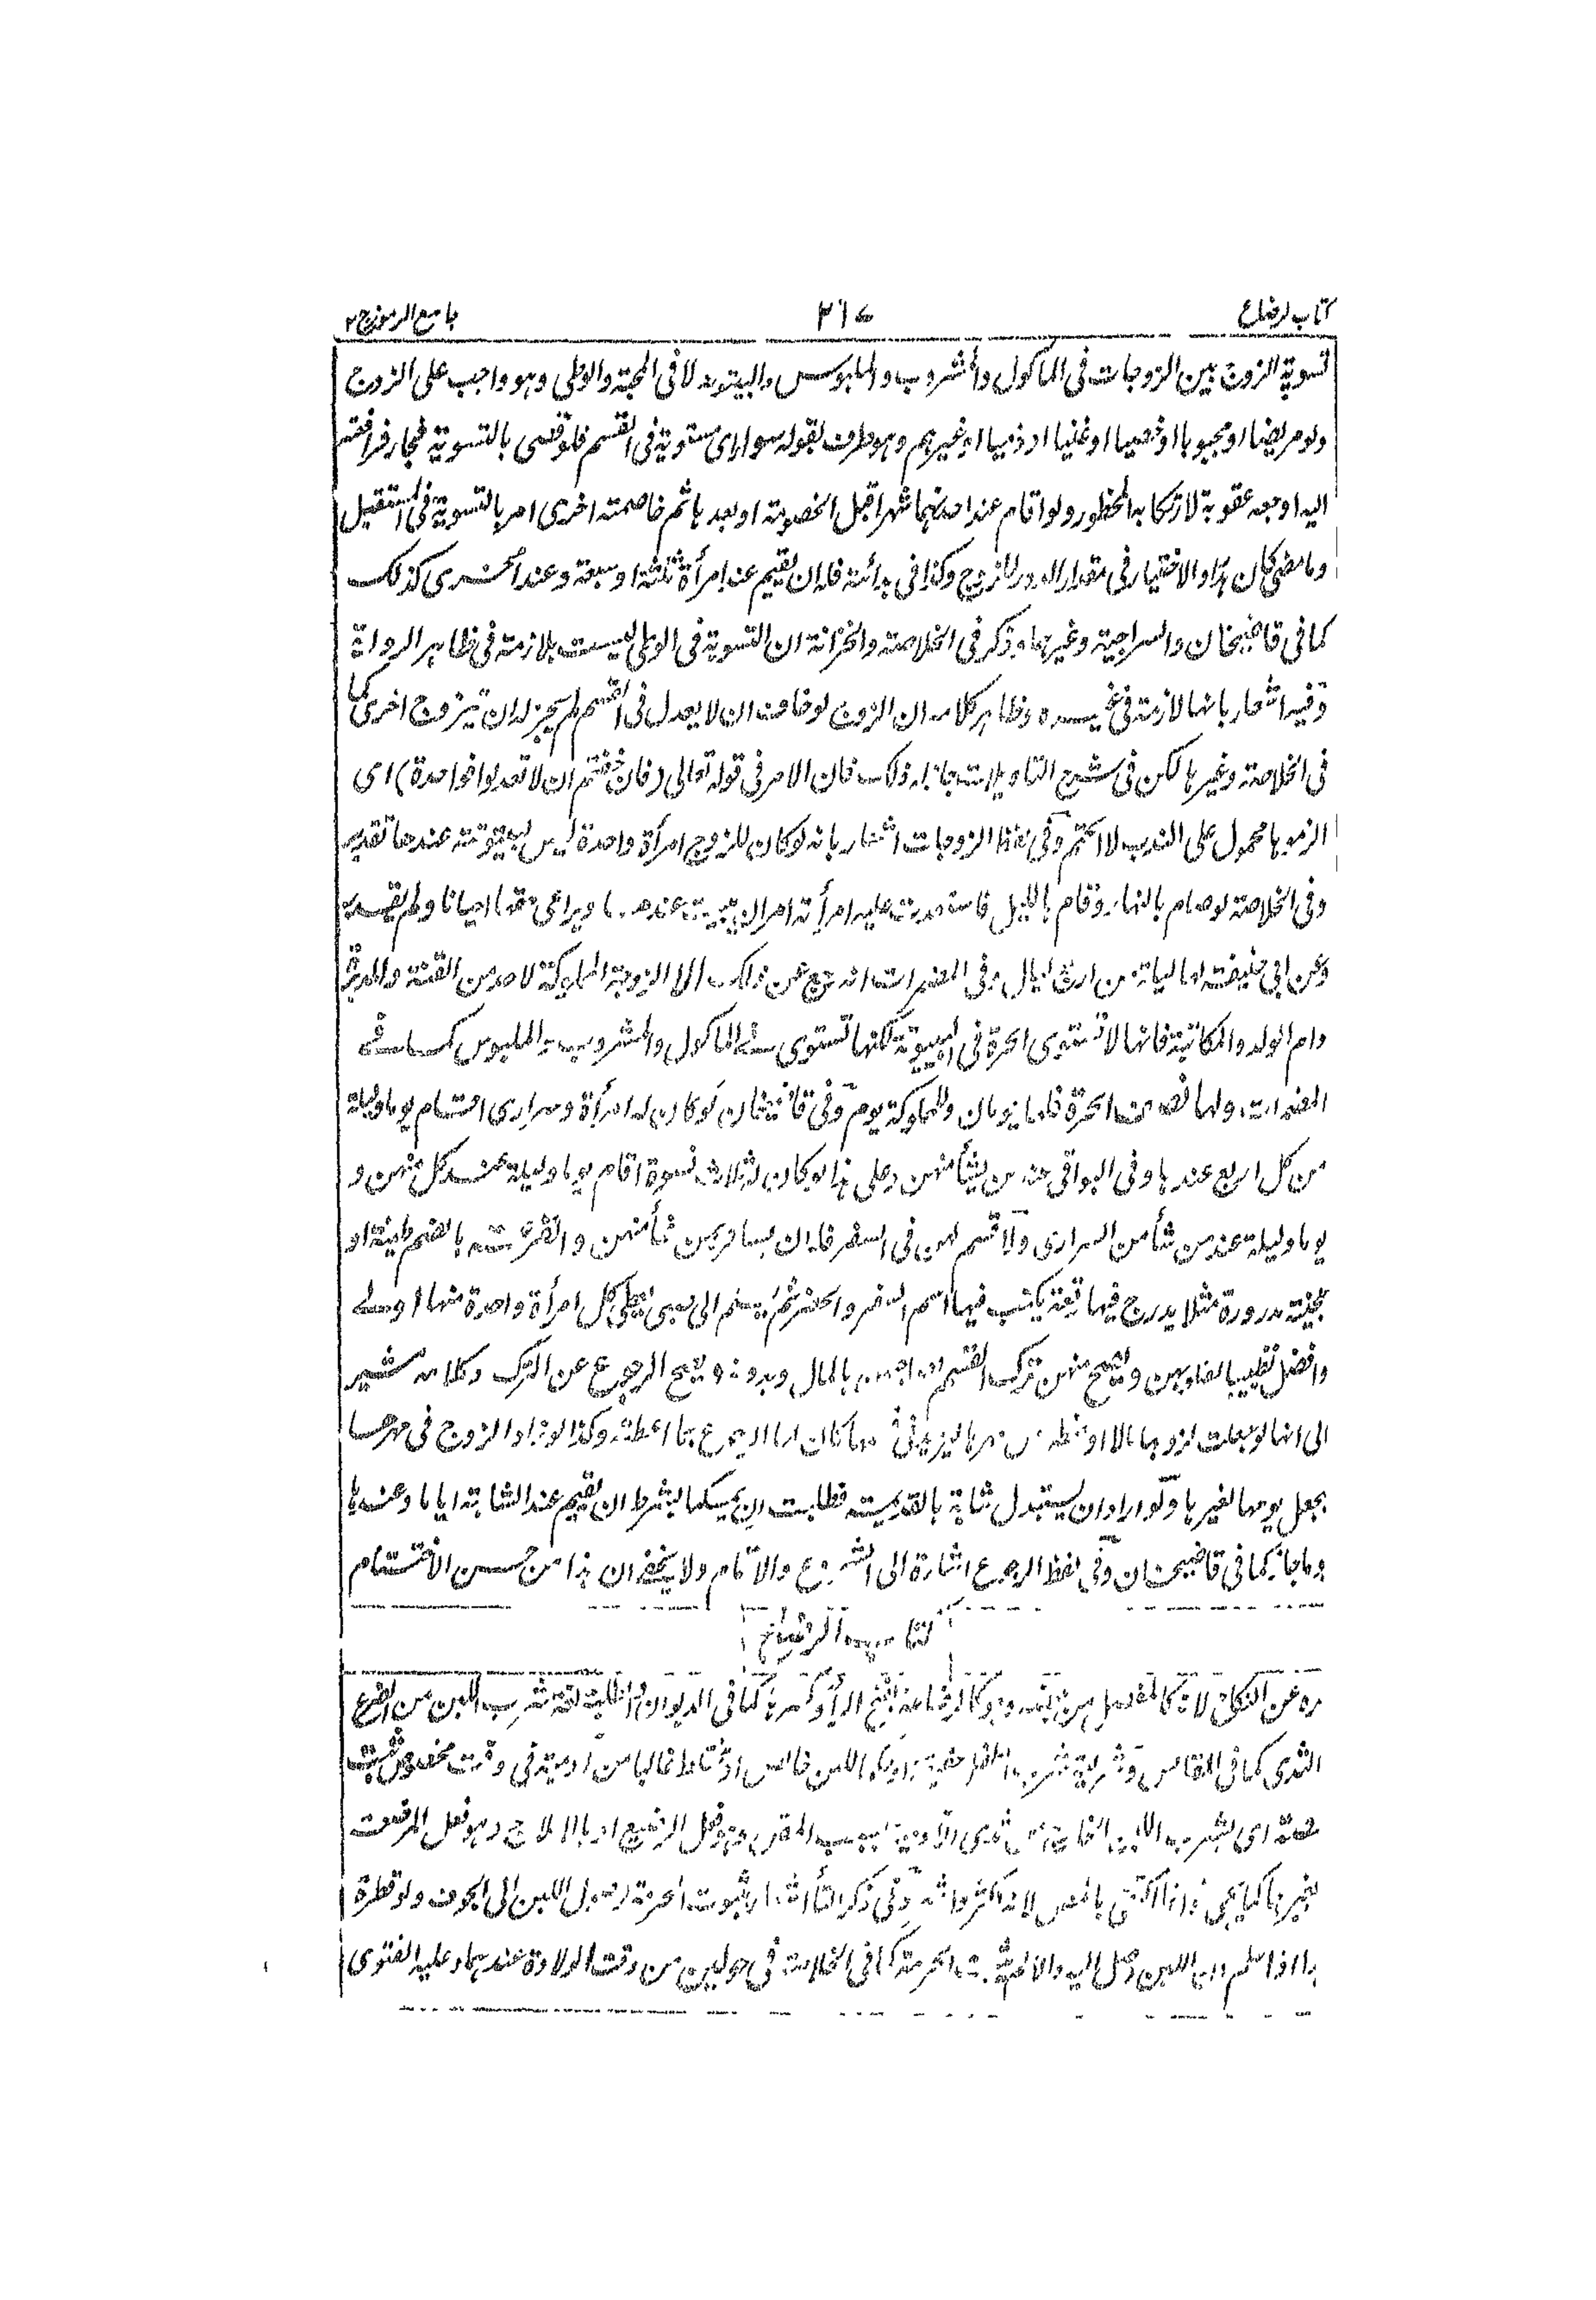 كتاب لرضاع
٣١٤
جامع الرموز ج ٢
تسوية الزوج بين الزوجات في الماكول والمشروب والملبوس والبيتوتة لا في المحبة والوطي وهو واجب على الزوج
ولو مريضا او مجبوبا او خصيا او عنينا او ذميا او غيرهم وهو طرف لقوله سواء اى مستوية في القسم فلو قضى بالتسوية فجار فرافعته
اليه اوجعه عقوبة لارتكابه المحظور ولو اقام عند احدهما شهرا قبل الخصومة او بعدها ثم خاصمته اخرى امر بالتسوية في المستقبل
وما مضى كان هدرا والاختيار في مقدار الدور للزوج وكذا في بدائته فله ان يقيم عند امرأة ثلثة او سبعة وعند اخرى كذلك
كما في قاضيخان والسراجية وغيرهما وذكر في الخلاصة والخزانة ان التسوية في الوطي ليست بلازمة في ظاهر الرواة
وفيه اشعار بانها لازمة في غيره وظاهر كلامه ان الزوج لو خاف ان لا يعدل في القسم لم يجز له ان يتزوج اخرى كما
في الخلاصة وغيرها لكن في شرح التاويلات جاز له ذلك فان الامر في قوله تعالى (فان خفتم ان لا تعدلوا فواحدة) اى
الزموها محمول على الندب لا الحتم وفي لفظ الزوجات اشعار بانه لو كان للزوج امرأة واحدة ليس لبيتوتته عندها تقدير
وفي الخلاصة لو صام بالنهار وقام بالليل فاستعدت عليه امرأته امر ان يبيت عندها ويراعى حقها احيانا ولم يقدر
وعن ابي حنيفة لها ليلة من اربع ليال وفي المضمرات انه رجع عن ذلك الا الزوجة المملوكة لاحد من القنة والمدبرة
وام الولد والمكاتبة فانها لا تستوى الحرة في البيتوتة لكنها تستوى في الماكول والمشروب والملبوس كما في
المضمرات ولها نصف الحرة فلها يومان وللمملوكة يوم وفي قاضيخان لو كان له امرأة وسرارى اقام يوما وليلة
من كل اربع عندها وفي البواقي عند من يشأ منهن وعلى هذا لو كان له ثلاث نسوة اقام يوما وليلة عند كل منهن و
يوما وليلة عند من شأ من السرارى ولا قسم لهن في السفر فله ان يسافر بمن شأ منهن والقرعة بالضم طينة او
عجينة مدورة مثلا يدرج فيها رقعة يكتب فيها اسم السفر والحضر ثم يسلم الى صبي يعطى كل امرأة واحدة منها اولى
وافضل تطييبا لقلوبهن ويصح منهن ترك القسم بالمال وبدونه ويصح الرجوع عن الترك وكلامه مشير
الى انها لو جعلت لزوجها مالا او حطت من مهرها ليزيد في قسمها كان لها الرجوع بما اعطته وكذا لو زاد الزوج في مهرها
بجعل يومها لغيرها ولو اراد ان يستبدل شابة بالقديمة فطلبت ان يمسكها بشرط ان يقيم عند الشابة اياما وعندها
يوما جاز كما في قاضيخان وفي لفظ الرجوع اشارة الى الشروع والاتمام ولا يخفى ان هذا من حسن الاختتام
كتاب الرضاع
عن النكاح لانه كالمفصل من وهو كالرضاعة بفتح الرأ وكسرها كما في الديوان لغة شرب اللبن من الضرع
الثدى كما في المقاييس وشريعة شرب الطفل حقيقة او حكما اللبن خالص او مختلط غالبا من آدمية في وقت مخصوص يثبت
اى بشرب اللبن من ثدى الآدمية وهو فعل الرضيع او بالاملاج وهو فعل المرضعة
بغيرها كما يجئ وانما اكتفى بالمص لانه اكثر واشهر وفي ذكر التأ اشعار بثبوت الحرمة بوصول اللبن الى الجوف ولو قطرة
اذا علم ان اللبن وصل اليه والا لم يثبت الحرمة كما في الخلاصة في حولين من وقت الولادة عندهما وعليه الفتوى